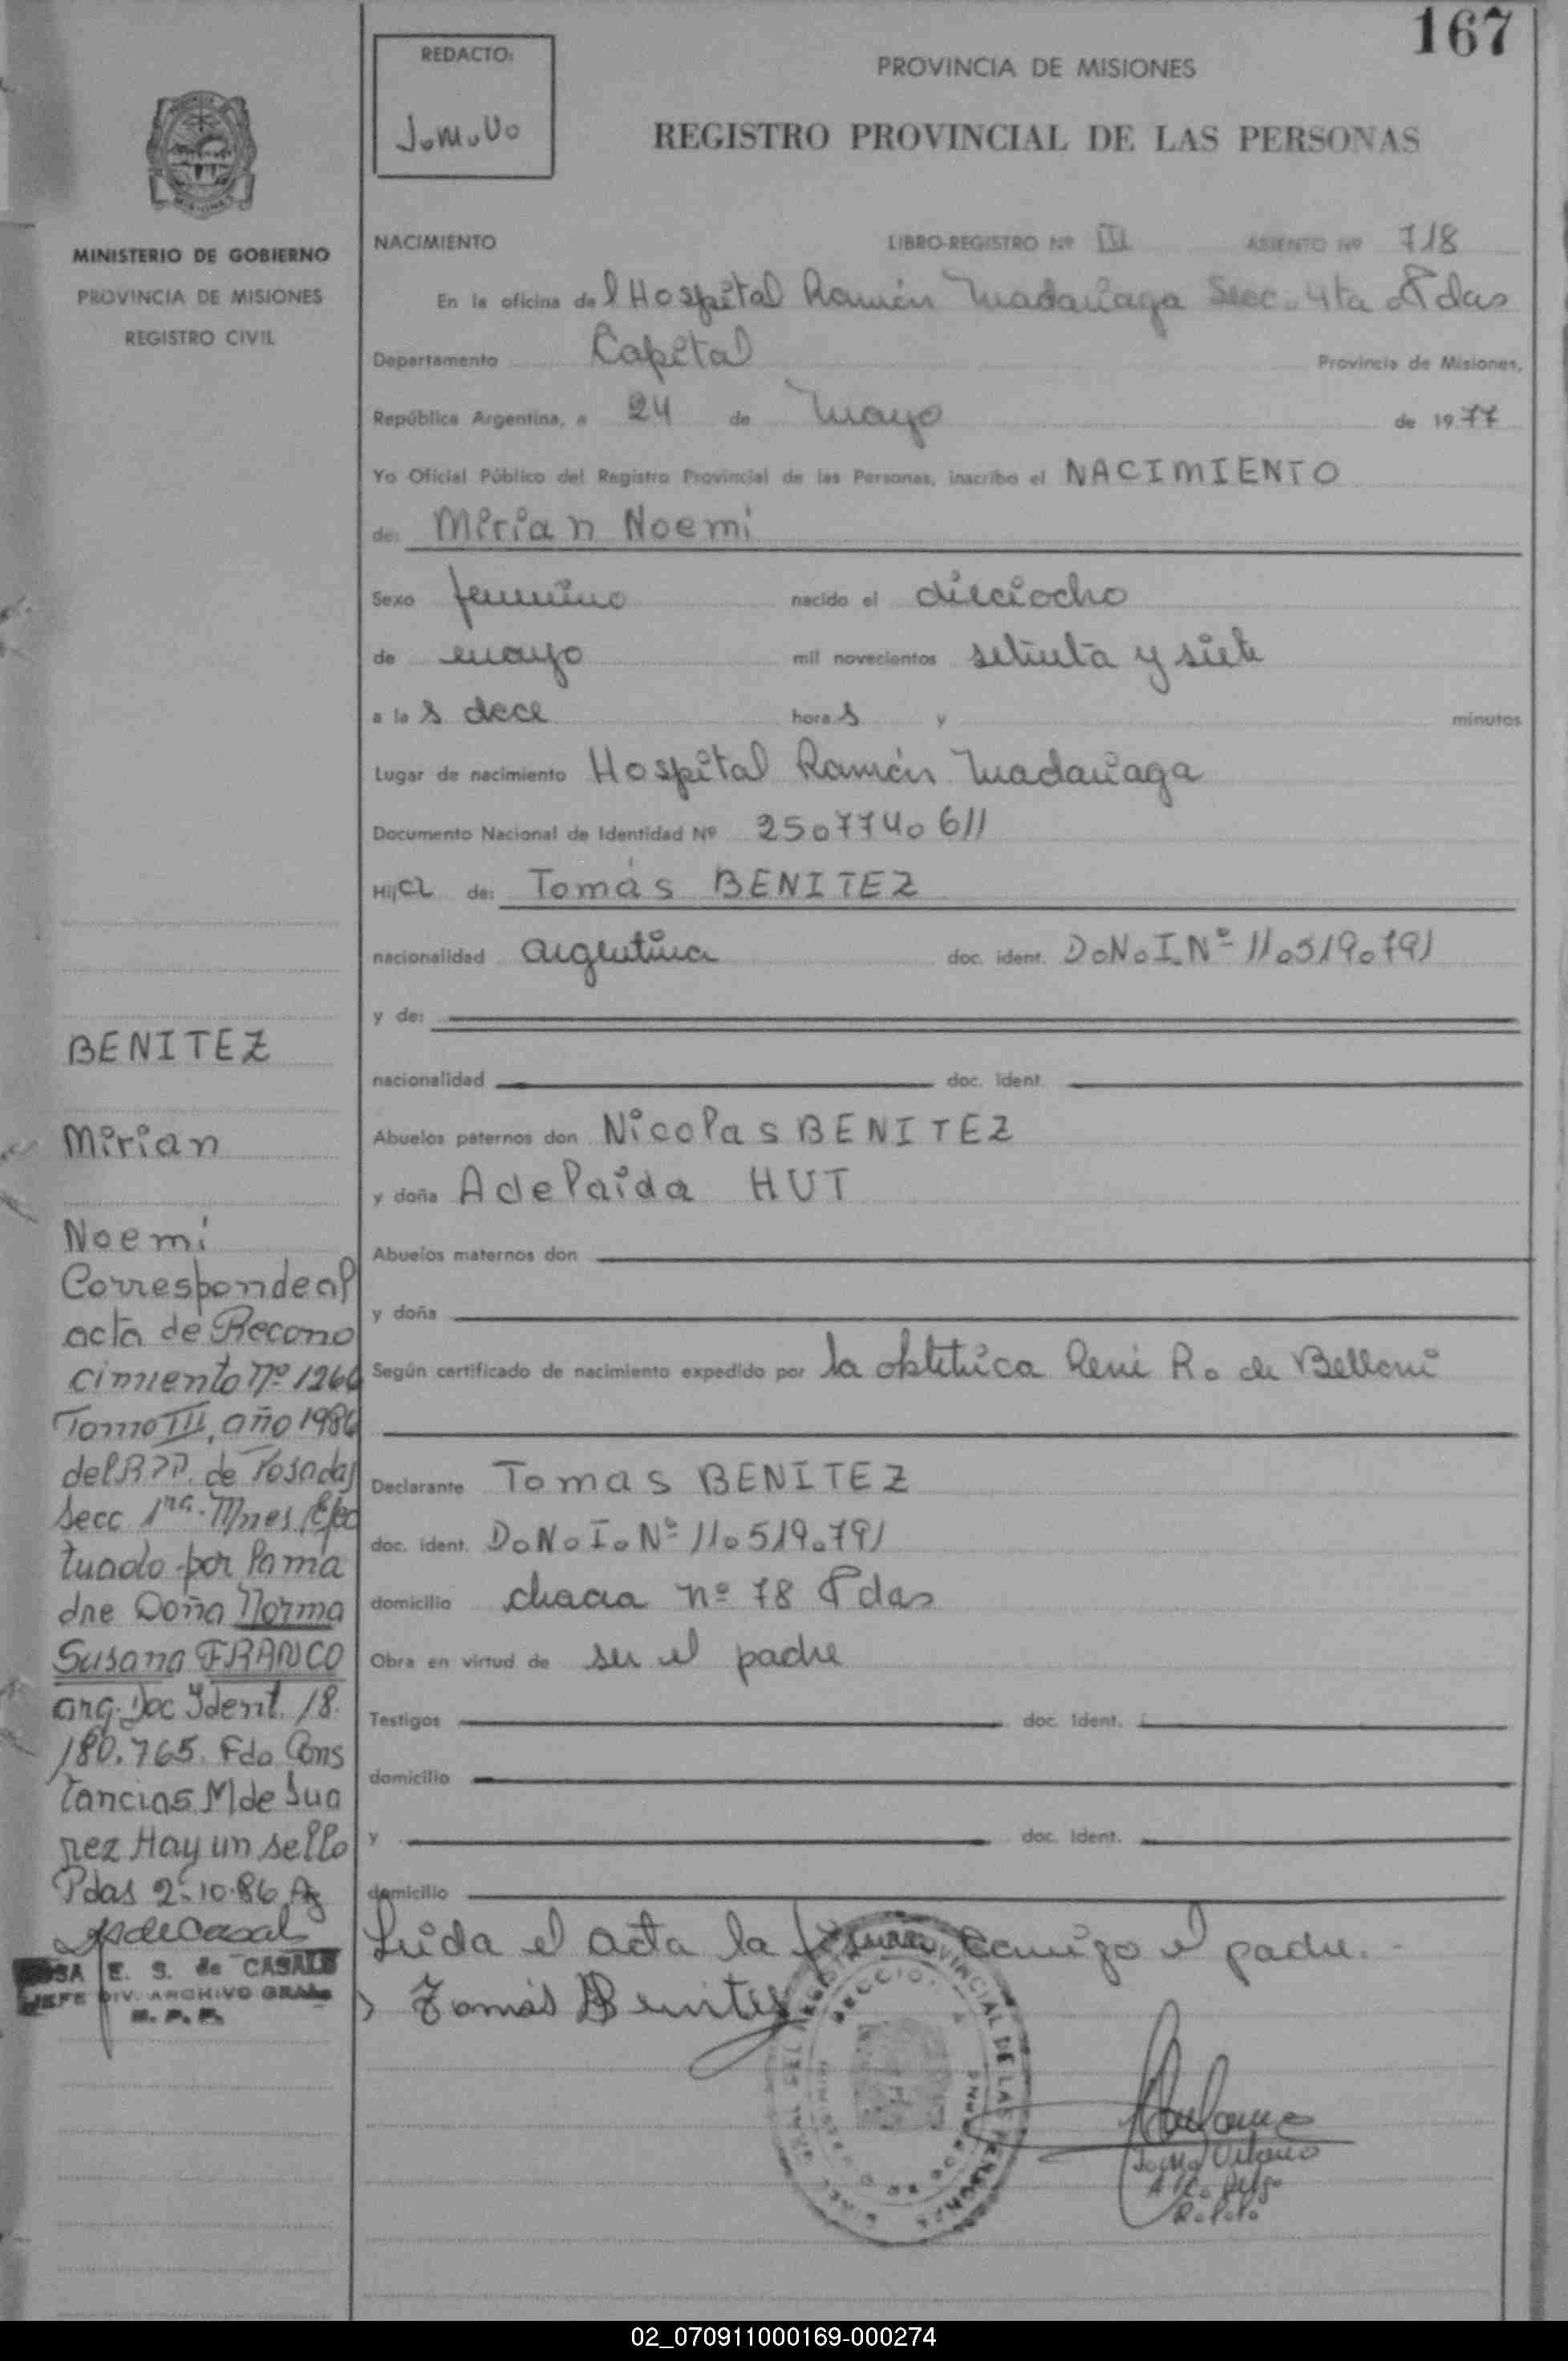 167
REDACTO:
J.M.V.
PROVINCIA DE MISIONES
REGISTRO PROVINCIAL DE LAS PERSONAS
MINISTERIO DE GOBIERNO
PROVINCIA DE MISIONES
REGISTRO CIVIL
NACIMIENTO LIBRO-REGISTRO Nº III ASIENTO Nº 718
En la oficina del Hospital Ramón Madariaga Secc. 4ta Pdas
Departamento Capital Provincia de Misiones,
República Argentina, a 24 de Mayo de 1977
Yo Oficial Público del Registro Provincial de las Personas, inscribo el NACIMIENTO
de: Mirian Noemi
Sexo femenino nacido el dieciocho
de mayo mil novecientos setenta y siete
a las doce horas y minutos
Lugar de nacimiento Hospital Ramón Madariaga
Documento Nacional de Identidad Nº 25.774.611
Hija de: Tomás BENITEZ
nacionalidad argentina doc. ident. D.N.I. Nº 11.519.791
y de:
nacionalidad doc. ident.
Abuelos paternos don Nicolas BENITEZ
y doña Adelaida HUT
Abuelos maternos don
y doña
Según certificado de nacimiento expedido por la obstetrica René R. de Belloni
Declarante Tomas BENITEZ
doc. ident. D.N.I. Nº 11.519.791
domicilio chacra nº 78 Pdas
Obra en virtud de ser el padre
Testigos doc. ident.
domicilio
y doc. ident.
domicilio
Leida el acta la firma conmigo el padre.
Tomás Benitez
BENITEZ
Mirian
Noemi
Corresponde al
acta de Recono
cimiento nº 1266
Tomo III, año 1986
del R.P.P. de Posadas
Secc 1ra. Mnes, Efec
tuado por la ma
dre Doña Norma
Susana FRANCO
arg. Doc Ident. 18.
180.765. Fdo Cons
tancias M de Sua
rez Hay un sello
Pdas 2-10-86
E. S. de CASALS
JEFE DIV. ARCHIVO GRAL.
R. P. P.
02_070911000169-000274